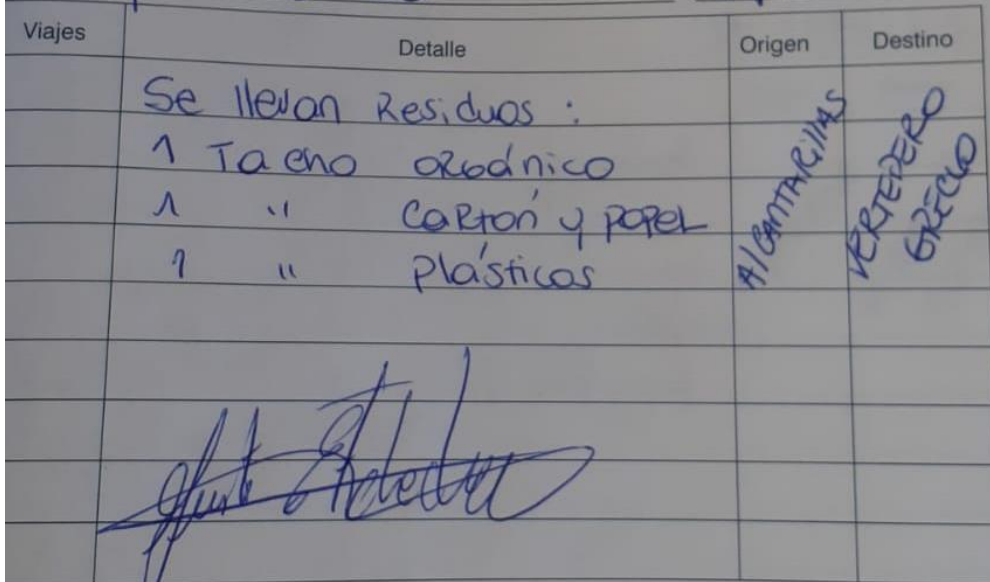 Viajes
Detalle
Origen
Destino
Se llevan Residuos :
1 Tacho orgánico
1 " Cartón y papel
1 " Plásticos
AlcantaRillas
VERTEDERO
GRECLO